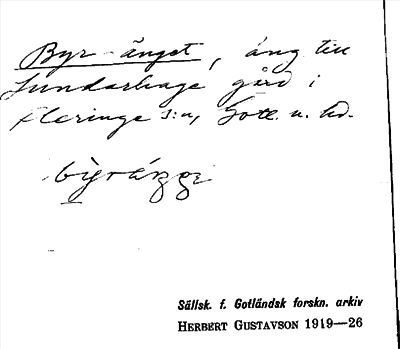 Byr-änget, äng till
Sundarhage gård i
Fleringe s:n, Gotl. n. hd.
Sällsk. f. Gotländsk forskn. arkiv
HERBERT GUSTAVSON 1919—26